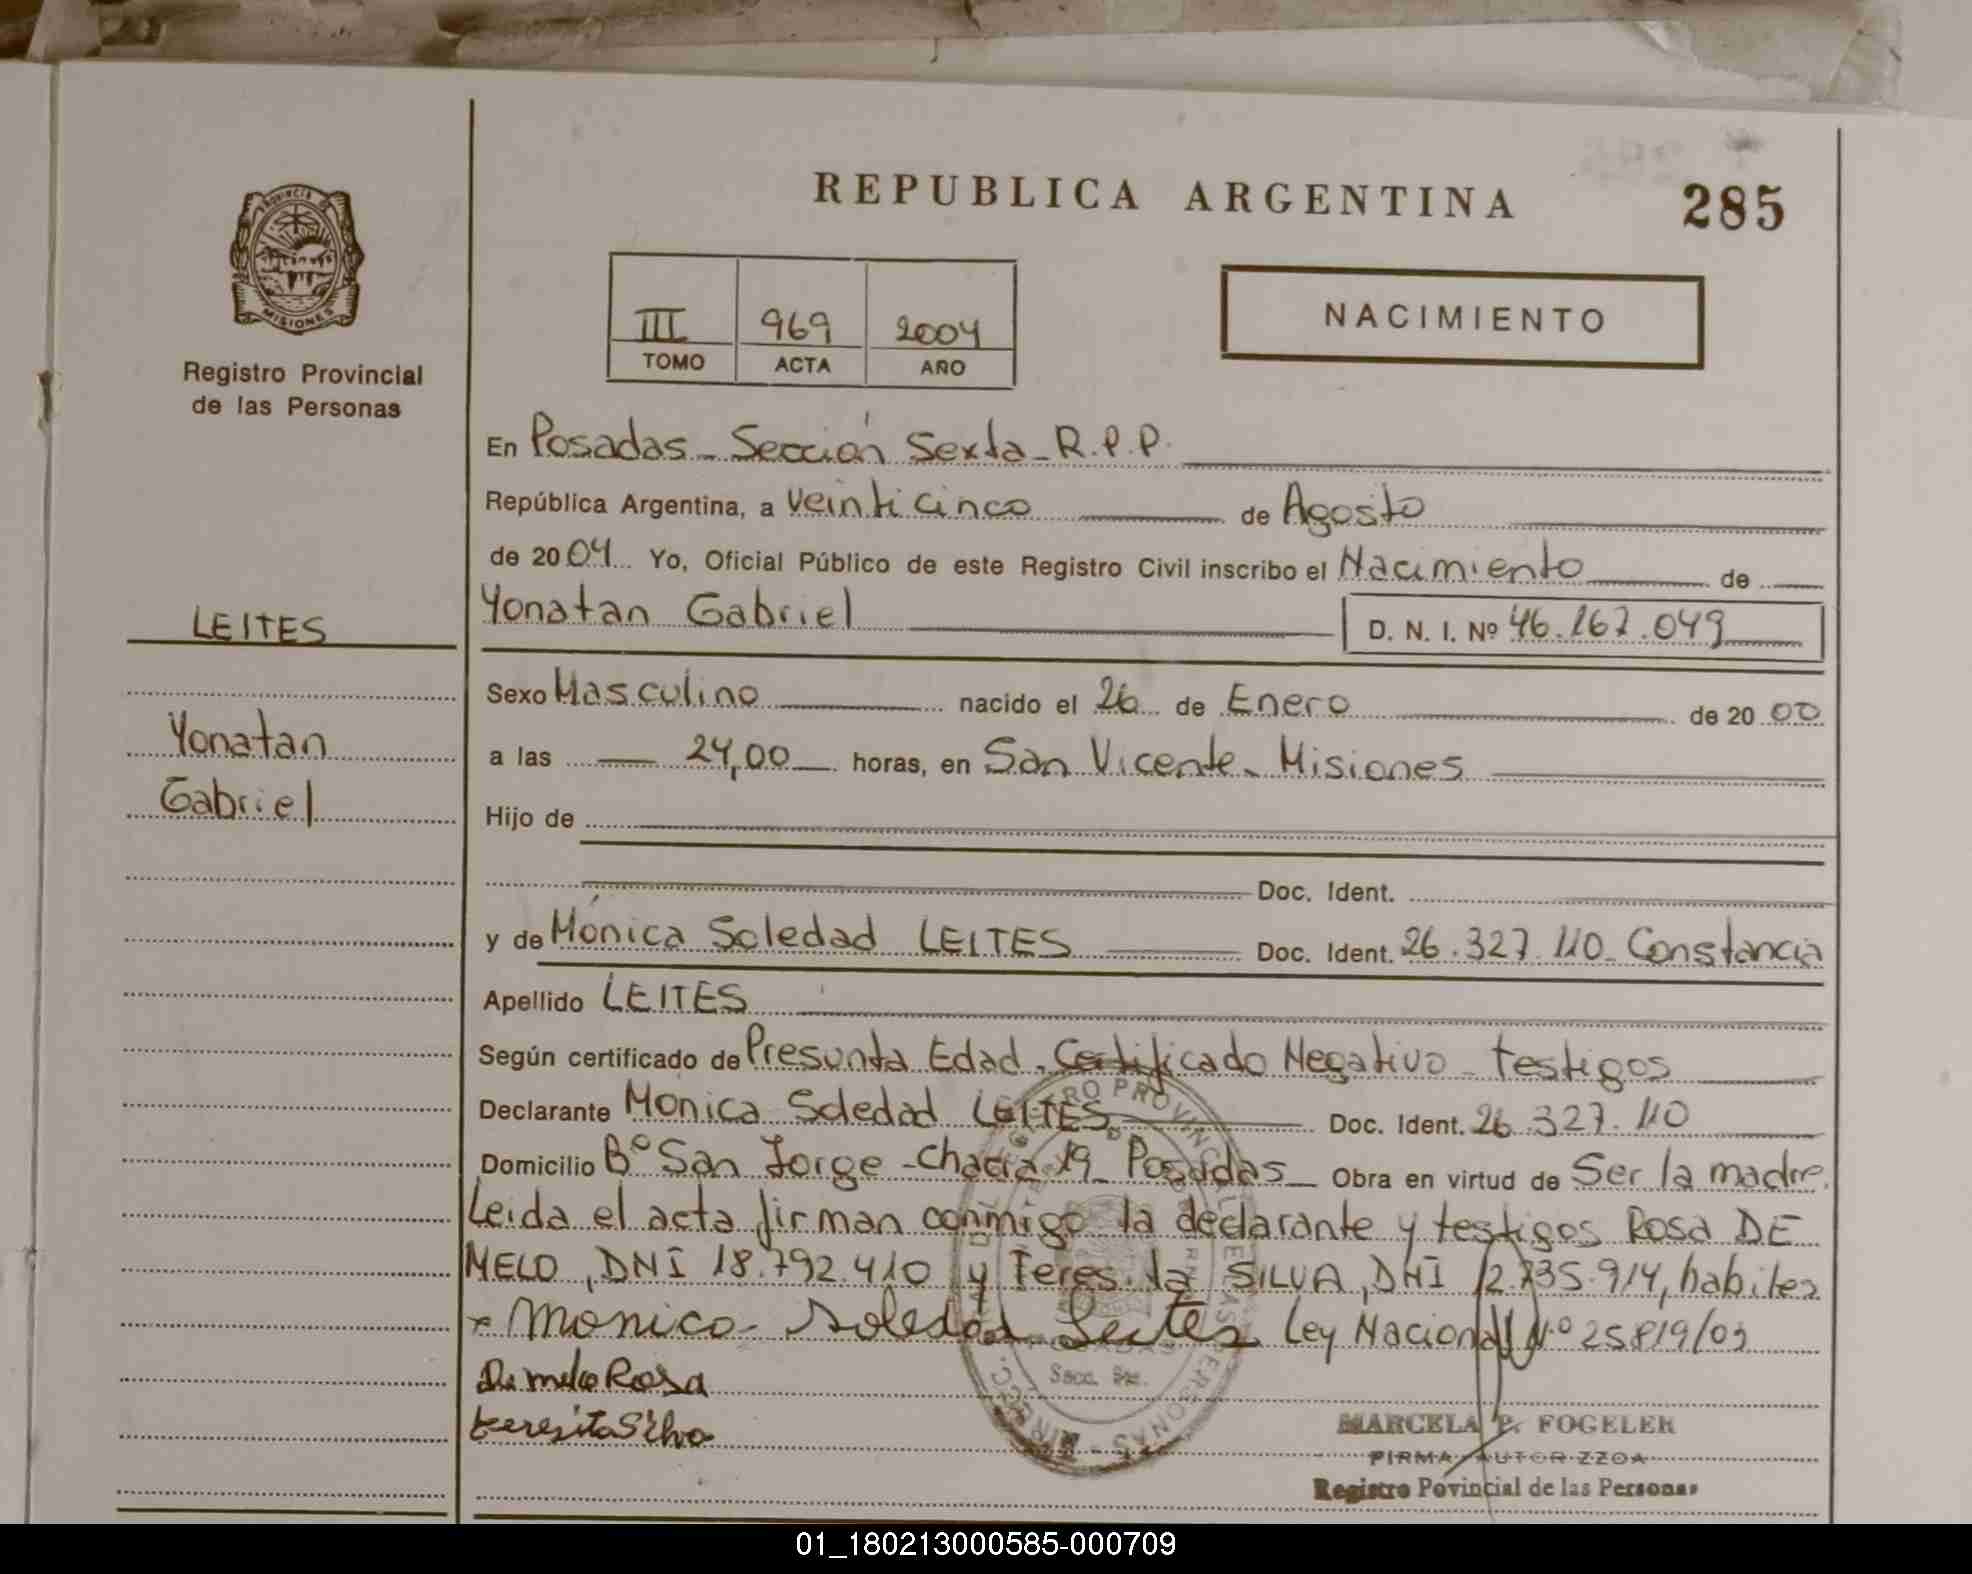 REPUBLICA ARGENTINA
285
PROVINCIA DE
MISIONES
Registro Provincial
de las Personas
III 969 2004
TOMO ACTA AÑO
NACIMIENTO
En Posadas - Sección Sexta - R.P.P.
República Argentina, a veinticinco de Agosto
de 2004 Yo, Oficial Público de este Registro Civil inscribo el Nacimiento de
Yonatan Gabriel D. N. I. Nº 46.267.049
LEITES
Yonatan
Gabriel
Sexo Masculino nacido el 26 de Enero de 2000
a las 24,00 horas, en San Vicente - Misiones
Hijo de
Doc. Ident.
y de Mónica Soledad LEITES Doc. Ident. 26.327.110 - Constancia
Apellido LEITES
Según certificado de Presunta Edad - Certificado Negativo - testigos
Declarante Monica Soledad LEITES Doc. Ident. 26.327.110
Domicilio Bº San Jorge - Chacra 19 - Posadas - Obra en virtud de Ser la madre.
Leida el acta firman conmigo la declarante y testigos Rosa DE
MELO, DNI 18.792.410 y Teresita SILVA, DNI 12.735.914, habiles
Monica Soledad Leites Ley Nacional Nº 25819/03
De melo Rosa
teresita Silva
Secc. 6ta.
MARCELA P. FOGELER
FIRMA AUTORIZZDA
Registro Povincial de las Personas
01_180213000585-000709